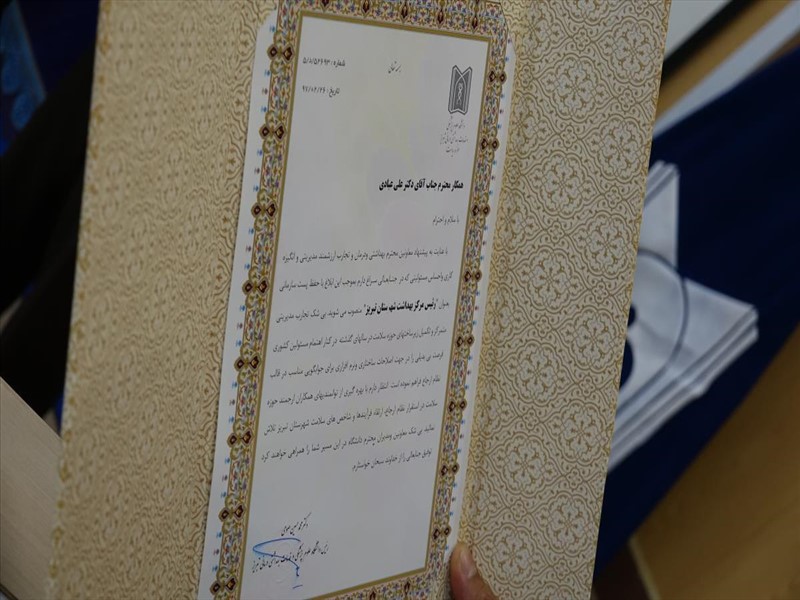 بسمه تعالی
شماره: ۵/۸/۵۶۶۹۳
تاریخ: ۹۷/۰۲/۲۶
همکار محترم جناب آقای دکتر علی عبادی
با سلام و احترام
با عنایت به پیشنهاد معاونین محترم بهداشتی ودرمان و تجارب ارزشمند مدیریتی و انگیزه
کاری واحساس مسئولیتی که در جنابعالی سراغ دارم بموجب این ابلاغ با حفظ پست سازمانی
بعنوان "رئیس مرکز بهداشت شهرستان تبریز" منصوب می شوید. بی شک تجارب مدیریتی
متمرکز و تکمیل زیرساختهای حوزه سلامت در سالهای گذشته در کنار اهتمام مسئولین کشوری
فرصت بی بدیلی را در جهت اصلاحات ساختاری ونرم افزاری برای جوابگویی مناسب در قالب
نظام ارجاع فراهم نموده است. انتظار دارم با بهره گیری از توانمندیهای همکاران ارجمند حوزه
سلامت در استقرار نظام ارجاع، ارتقاء فرآیندها و شاخص های سلامت شهرستان تبریز تلاش
نمائید. بی شک معاونین ومدیران محترم دانشگاه در این مسیر شما را همراهی خواهند کرد.
توفیق جنابعالی را از خداوند سبحان خواستارم.
دکتر محمد حسین صومی
رئیس دانشگاه علوم پزشکی و خدمات بهداشتی درمانی تبریز